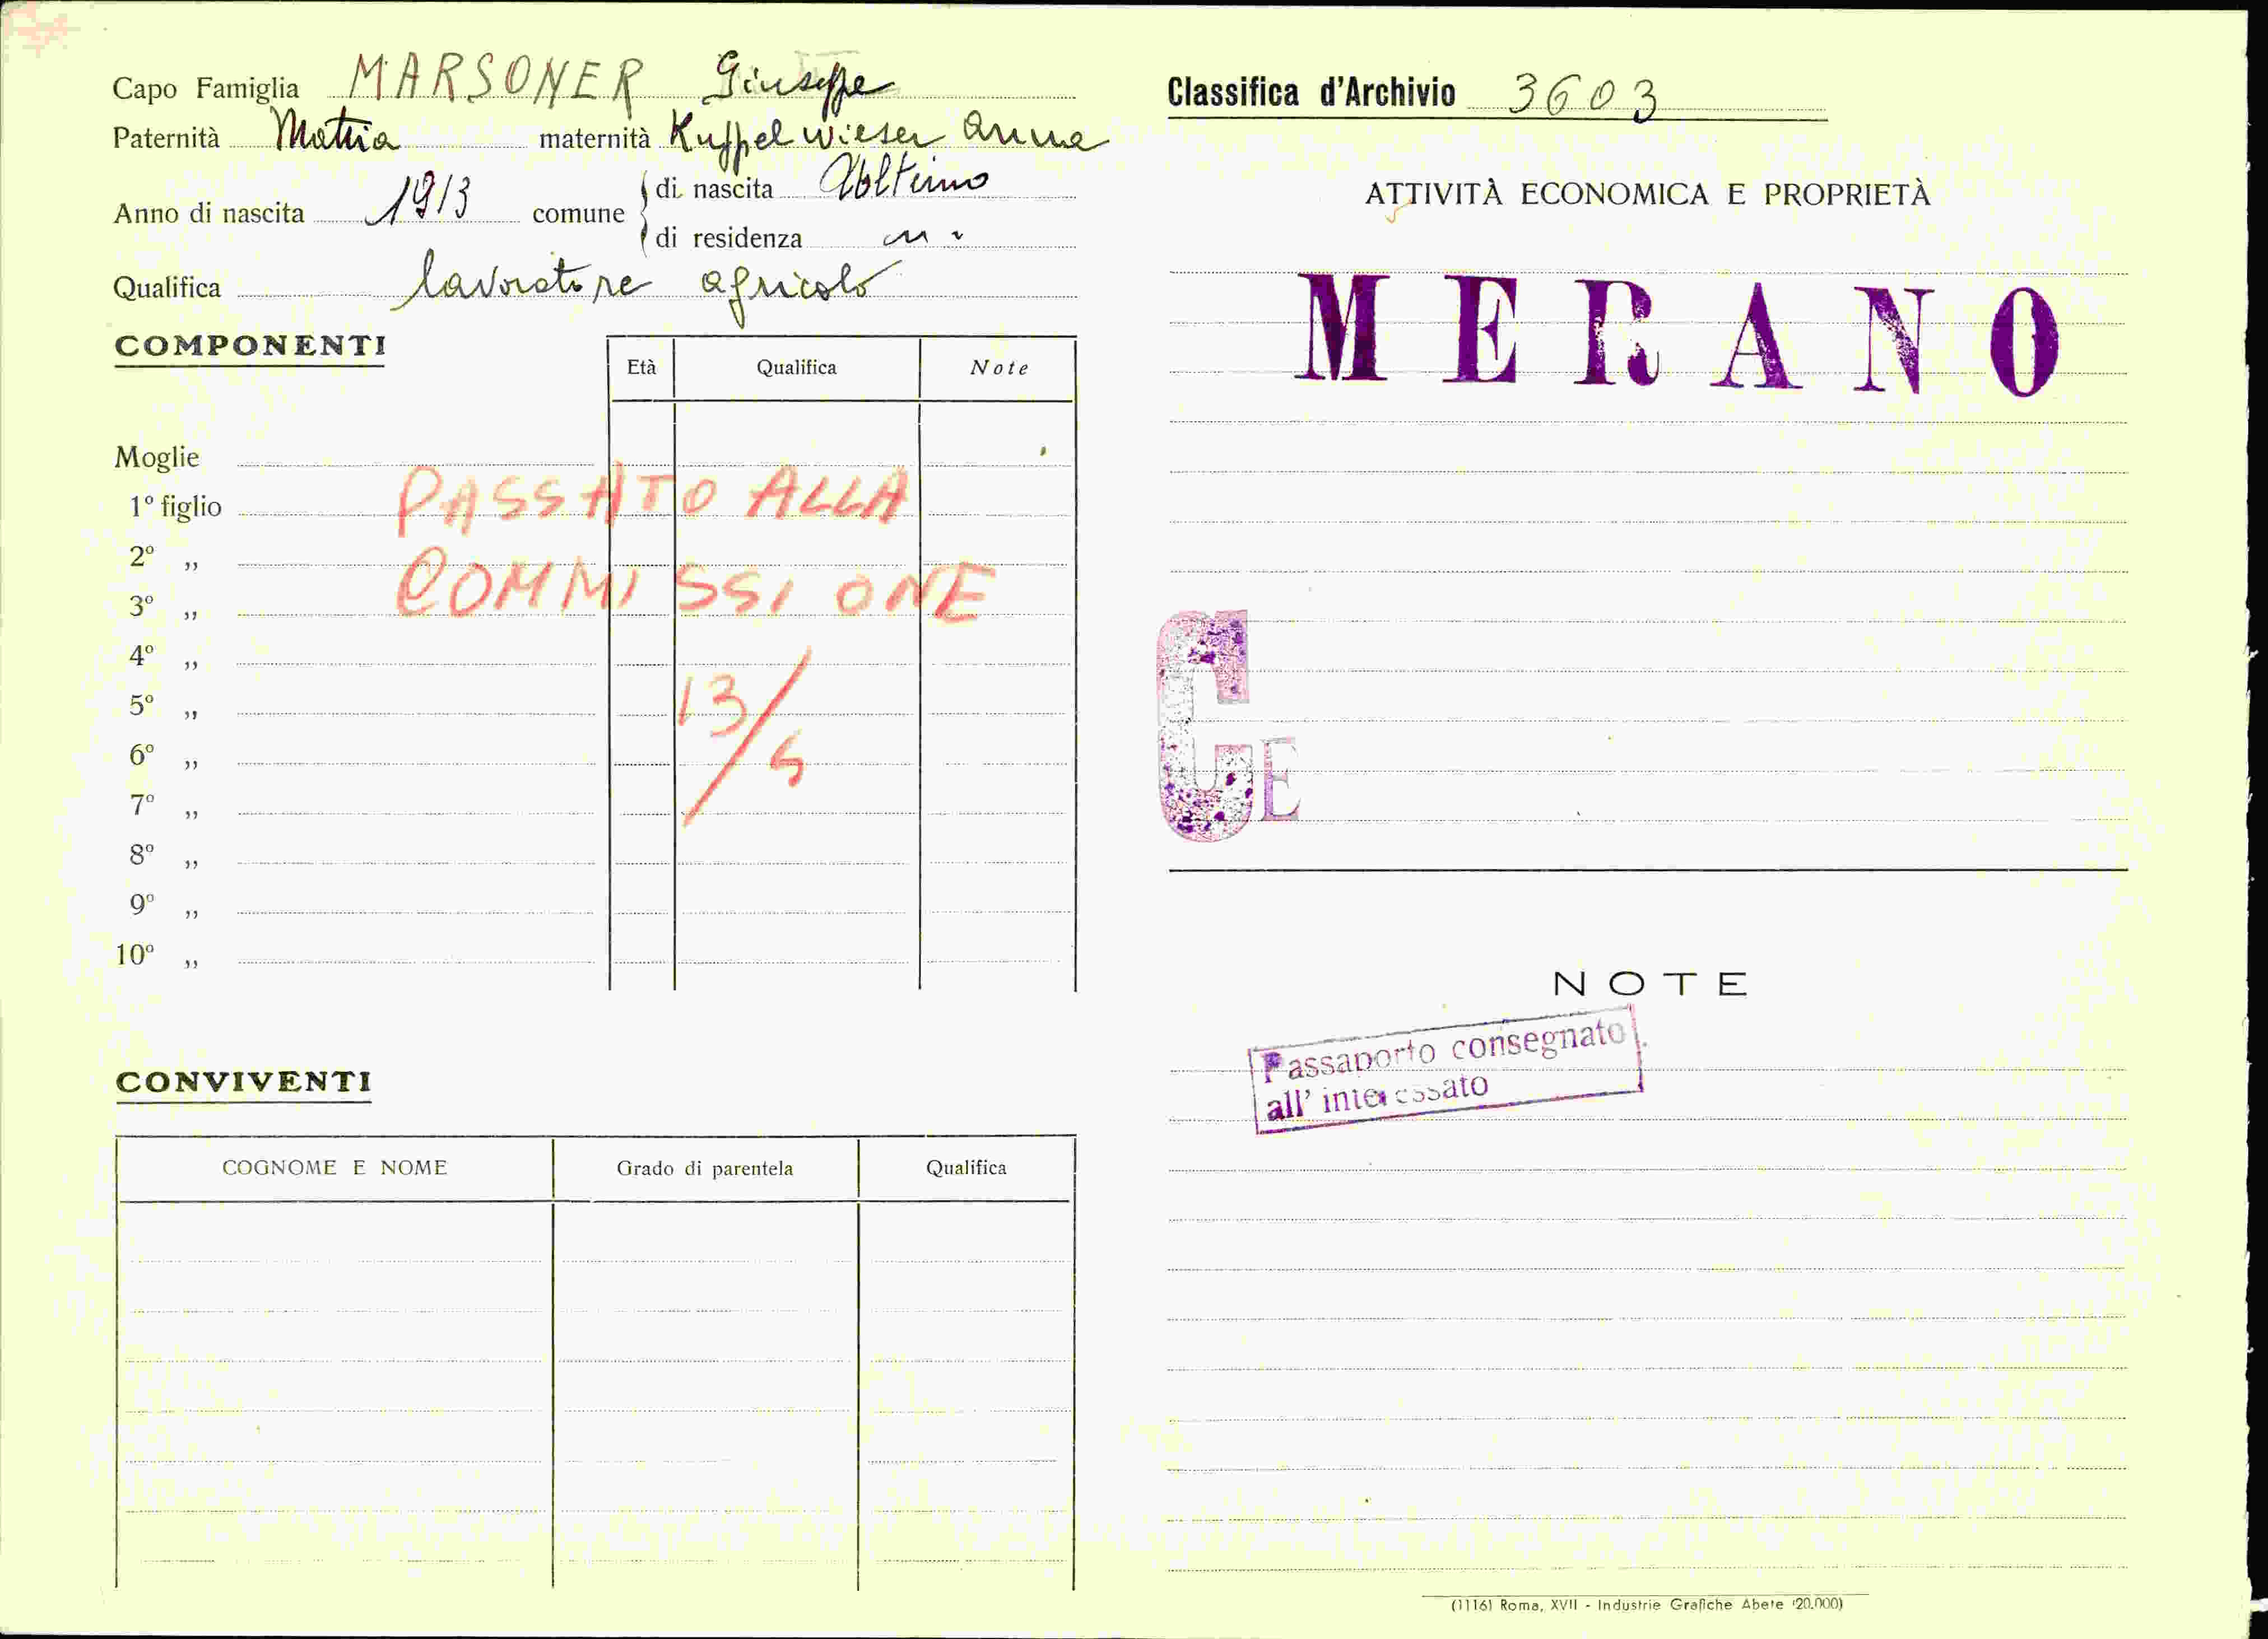 Capo Famiglia MARSONER Giuseppe
Paternità Mattia maternità Kuppelwieser Anna
Anno di nascita 1913 comune
di nascita Ultimo
di residenza
Qualifica lavoratore agricolo
COMPONENTI
Età Qualifica Note
Moglie
1º figlio
2º ,,
3º ,,
4º ,,
5º ,,
6º ,,
7º ,,
8º ,,
9º ,,
10º ,,
PASSATO ALLA
COMMISSIONE
CONVIVENTI
COGNOME E NOME Grado di parentela Qualifica
Classifica d'Archivio 3603
ATTIVITÀ ECONOMICA E PROPRIETÀ
MERANO
G E
NOTE
Passaporto consegnato
all' interessato
(1116) Roma, XVII - Industrie Grafiche Abete (20.000)